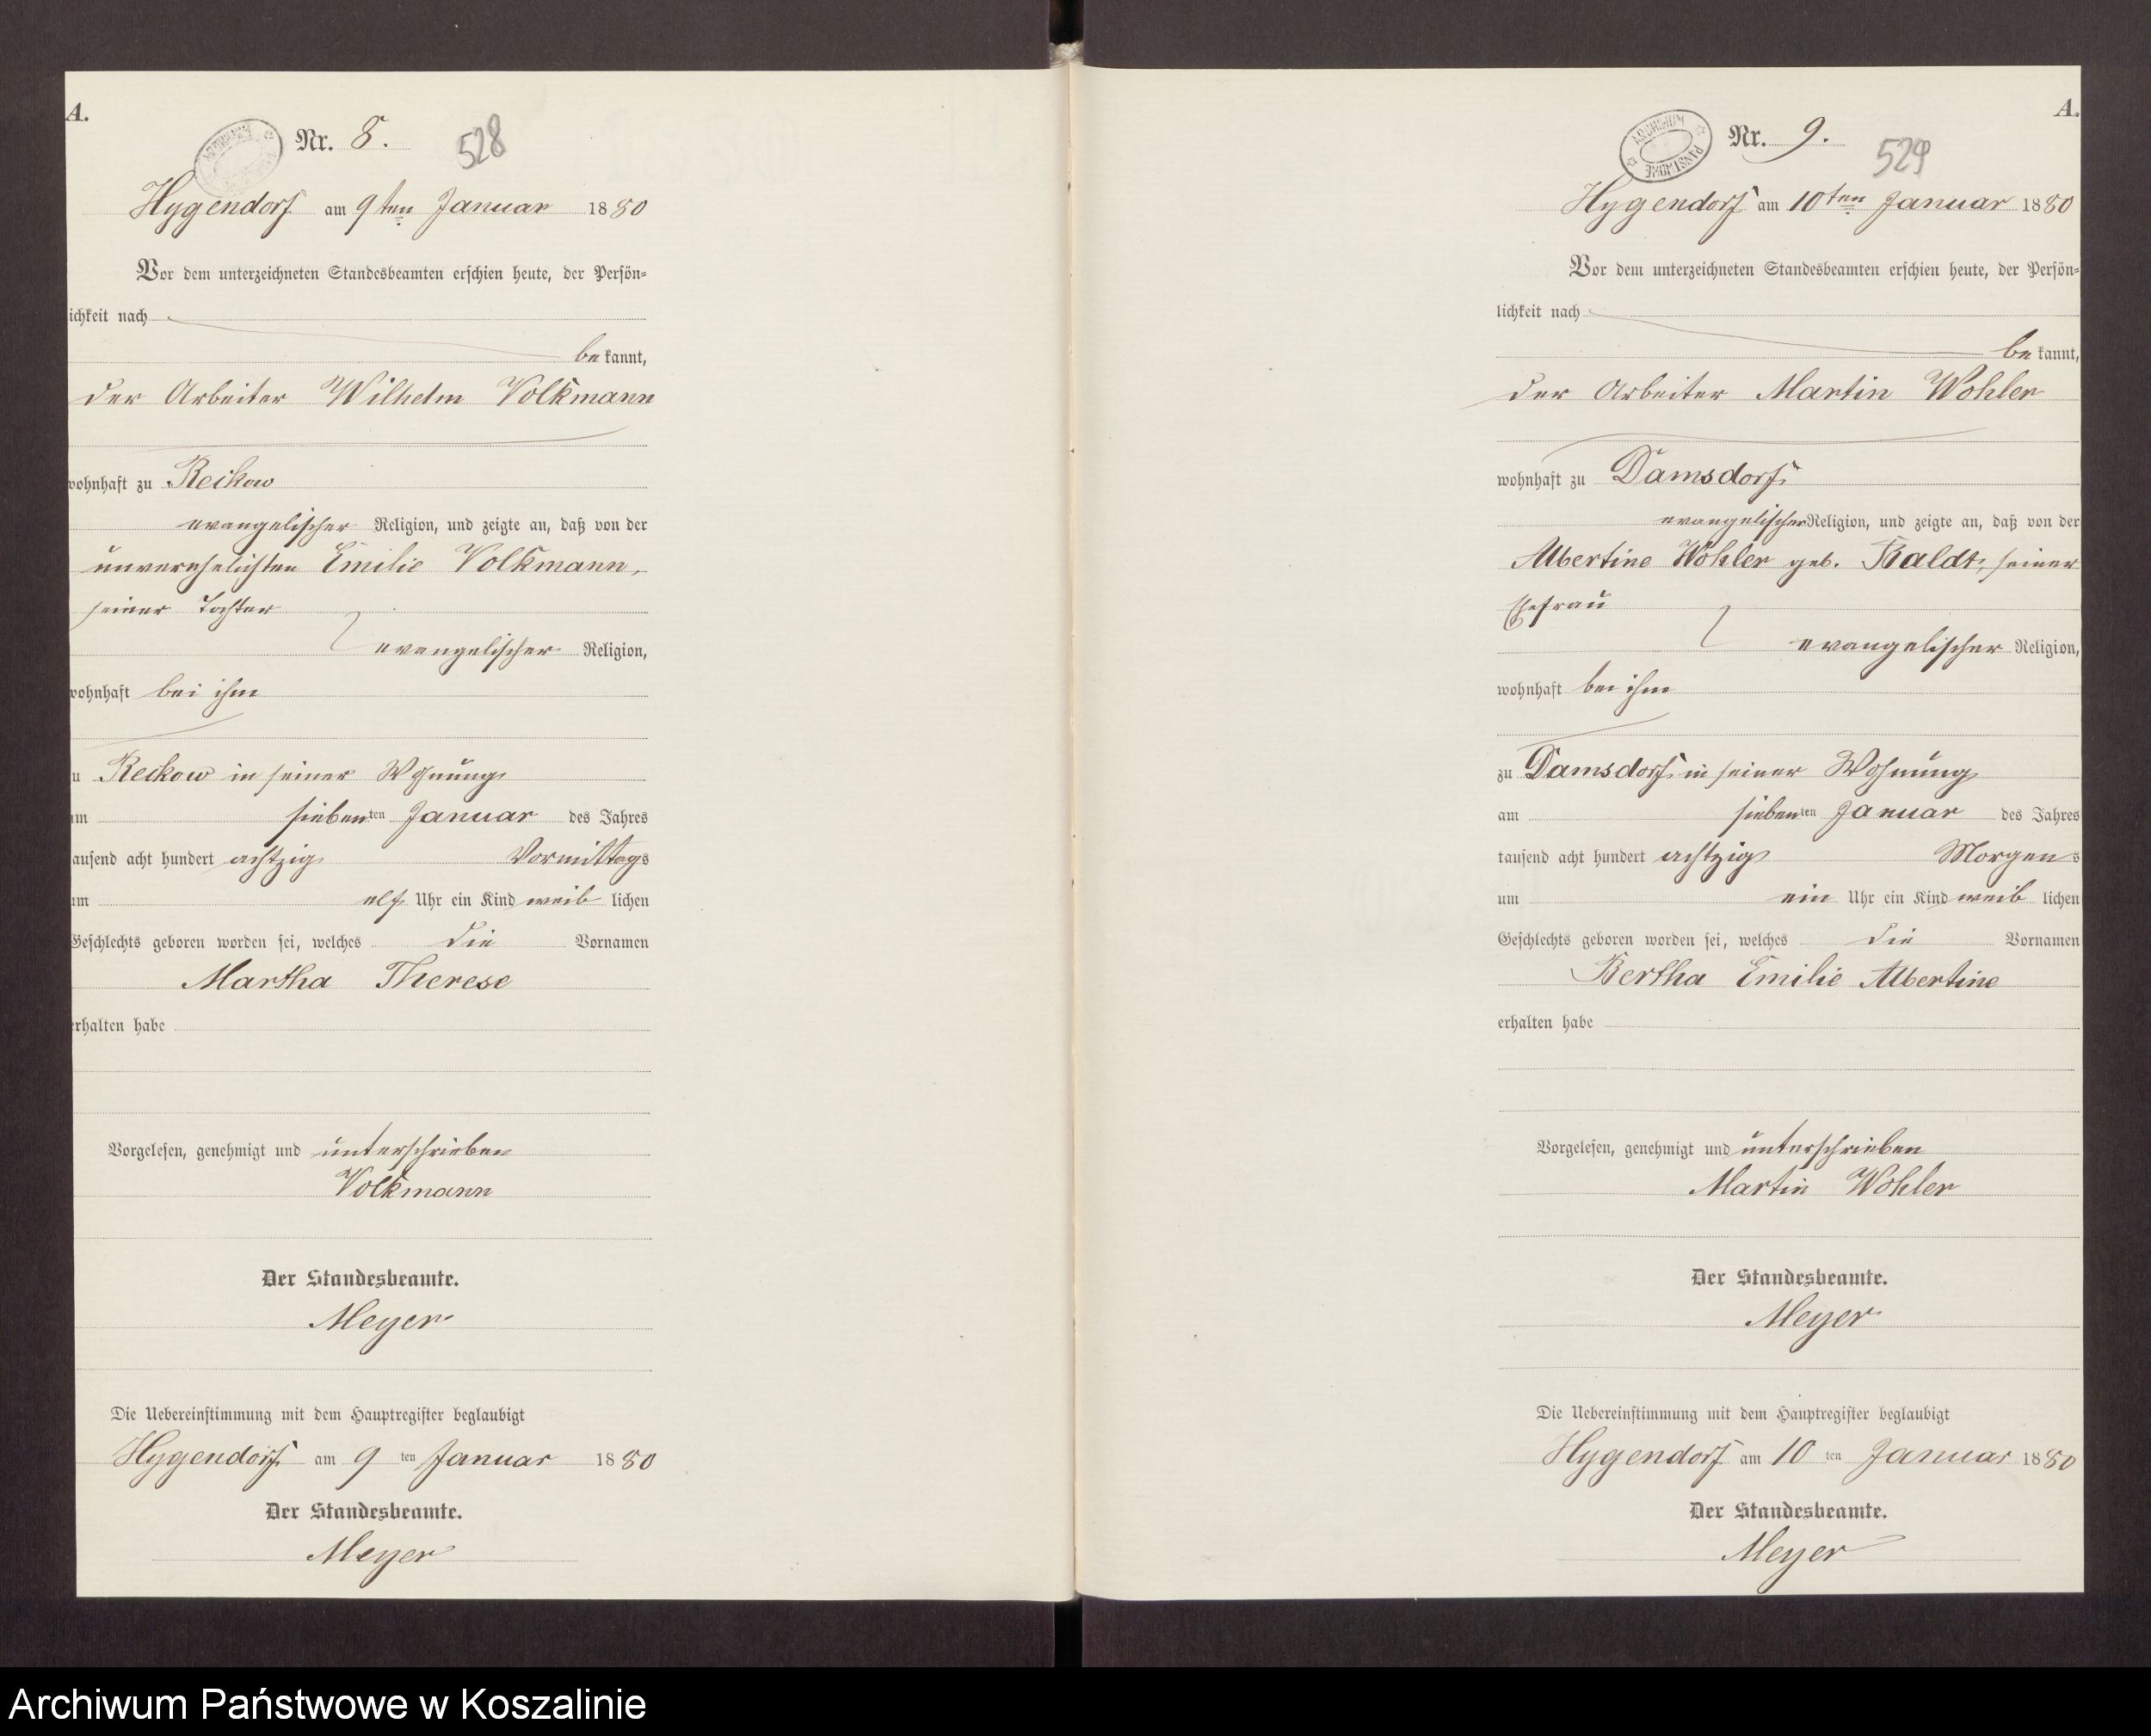 A.
Nr. 8.
528
Hygendorf am 9ten Januar 1880
Vor dem unterzeichneten Standesbeamten erschien heute, der Persön=
ichkeit nach
be kannt,
der Arbeiter Wilhelm Volkmann
wohnhaft zu Reckow
evangelischer Religion, und zeigte an, daß von der
unverehelichten Emilie Volkmann,
seiner Tochter
evangelischer Religion,
wohnhaft bei ihm
u Reckow in seiner Wohnung
am siebenten Januar des Jahres
tausend acht hundert achtzig Vormittags
um elf Uhr ein Kind weib lichen
Geschlechts geboren worden sei, welches die Vornamen
Martha Therese
erhalten habe
Vorgelesen, genehmigt und unterschrieben
Volkmann
Der Standesbeamte.
Meyer
Die Uebereinstimmung mit dem Hauptregister beglaubigt
Hygendorf am 9 ten Januar 1880
Der Standesbeamte.
Meyer
A.
ARCHIWUM PAŃSTWOWE
Nr. 9.
529
Hygendorf am 10ten Januar 1880
Vor dem unterzeichneten Standesbeamten erschien heute, der Persön=
lichkeit nach
be kannt,
der Arbeiter Martin Wohler
wohnhaft zu Damsdorf
evangelischer Religion, und zeigte an, daß von der
Albertine Wohler geb. Raldt, seiner
Ehefrau
evangelischer Religion,
wohnhaft bei ihm
zu Damsdorf in seiner Wohnung
am siebenten Januar des Jahres
tausend acht hundert achtzig Morgens
um ein Uhr ein Kind weib lichen
Geschlechts geboren worden sei, welches die Vornamen
Bertha Emilie Albertine
erhalten habe
Vorgelesen, genehmigt und unterschrieben
Martin Wohler
Der Standesbeamte.
Meyer
Die Uebereinstimmung mit dem Hauptregister beglaubigt
Hygendorf am 10 ten Januar 1880
Der Standesbeamte.
Meyer
Archiwum Państwowe w Koszalinie